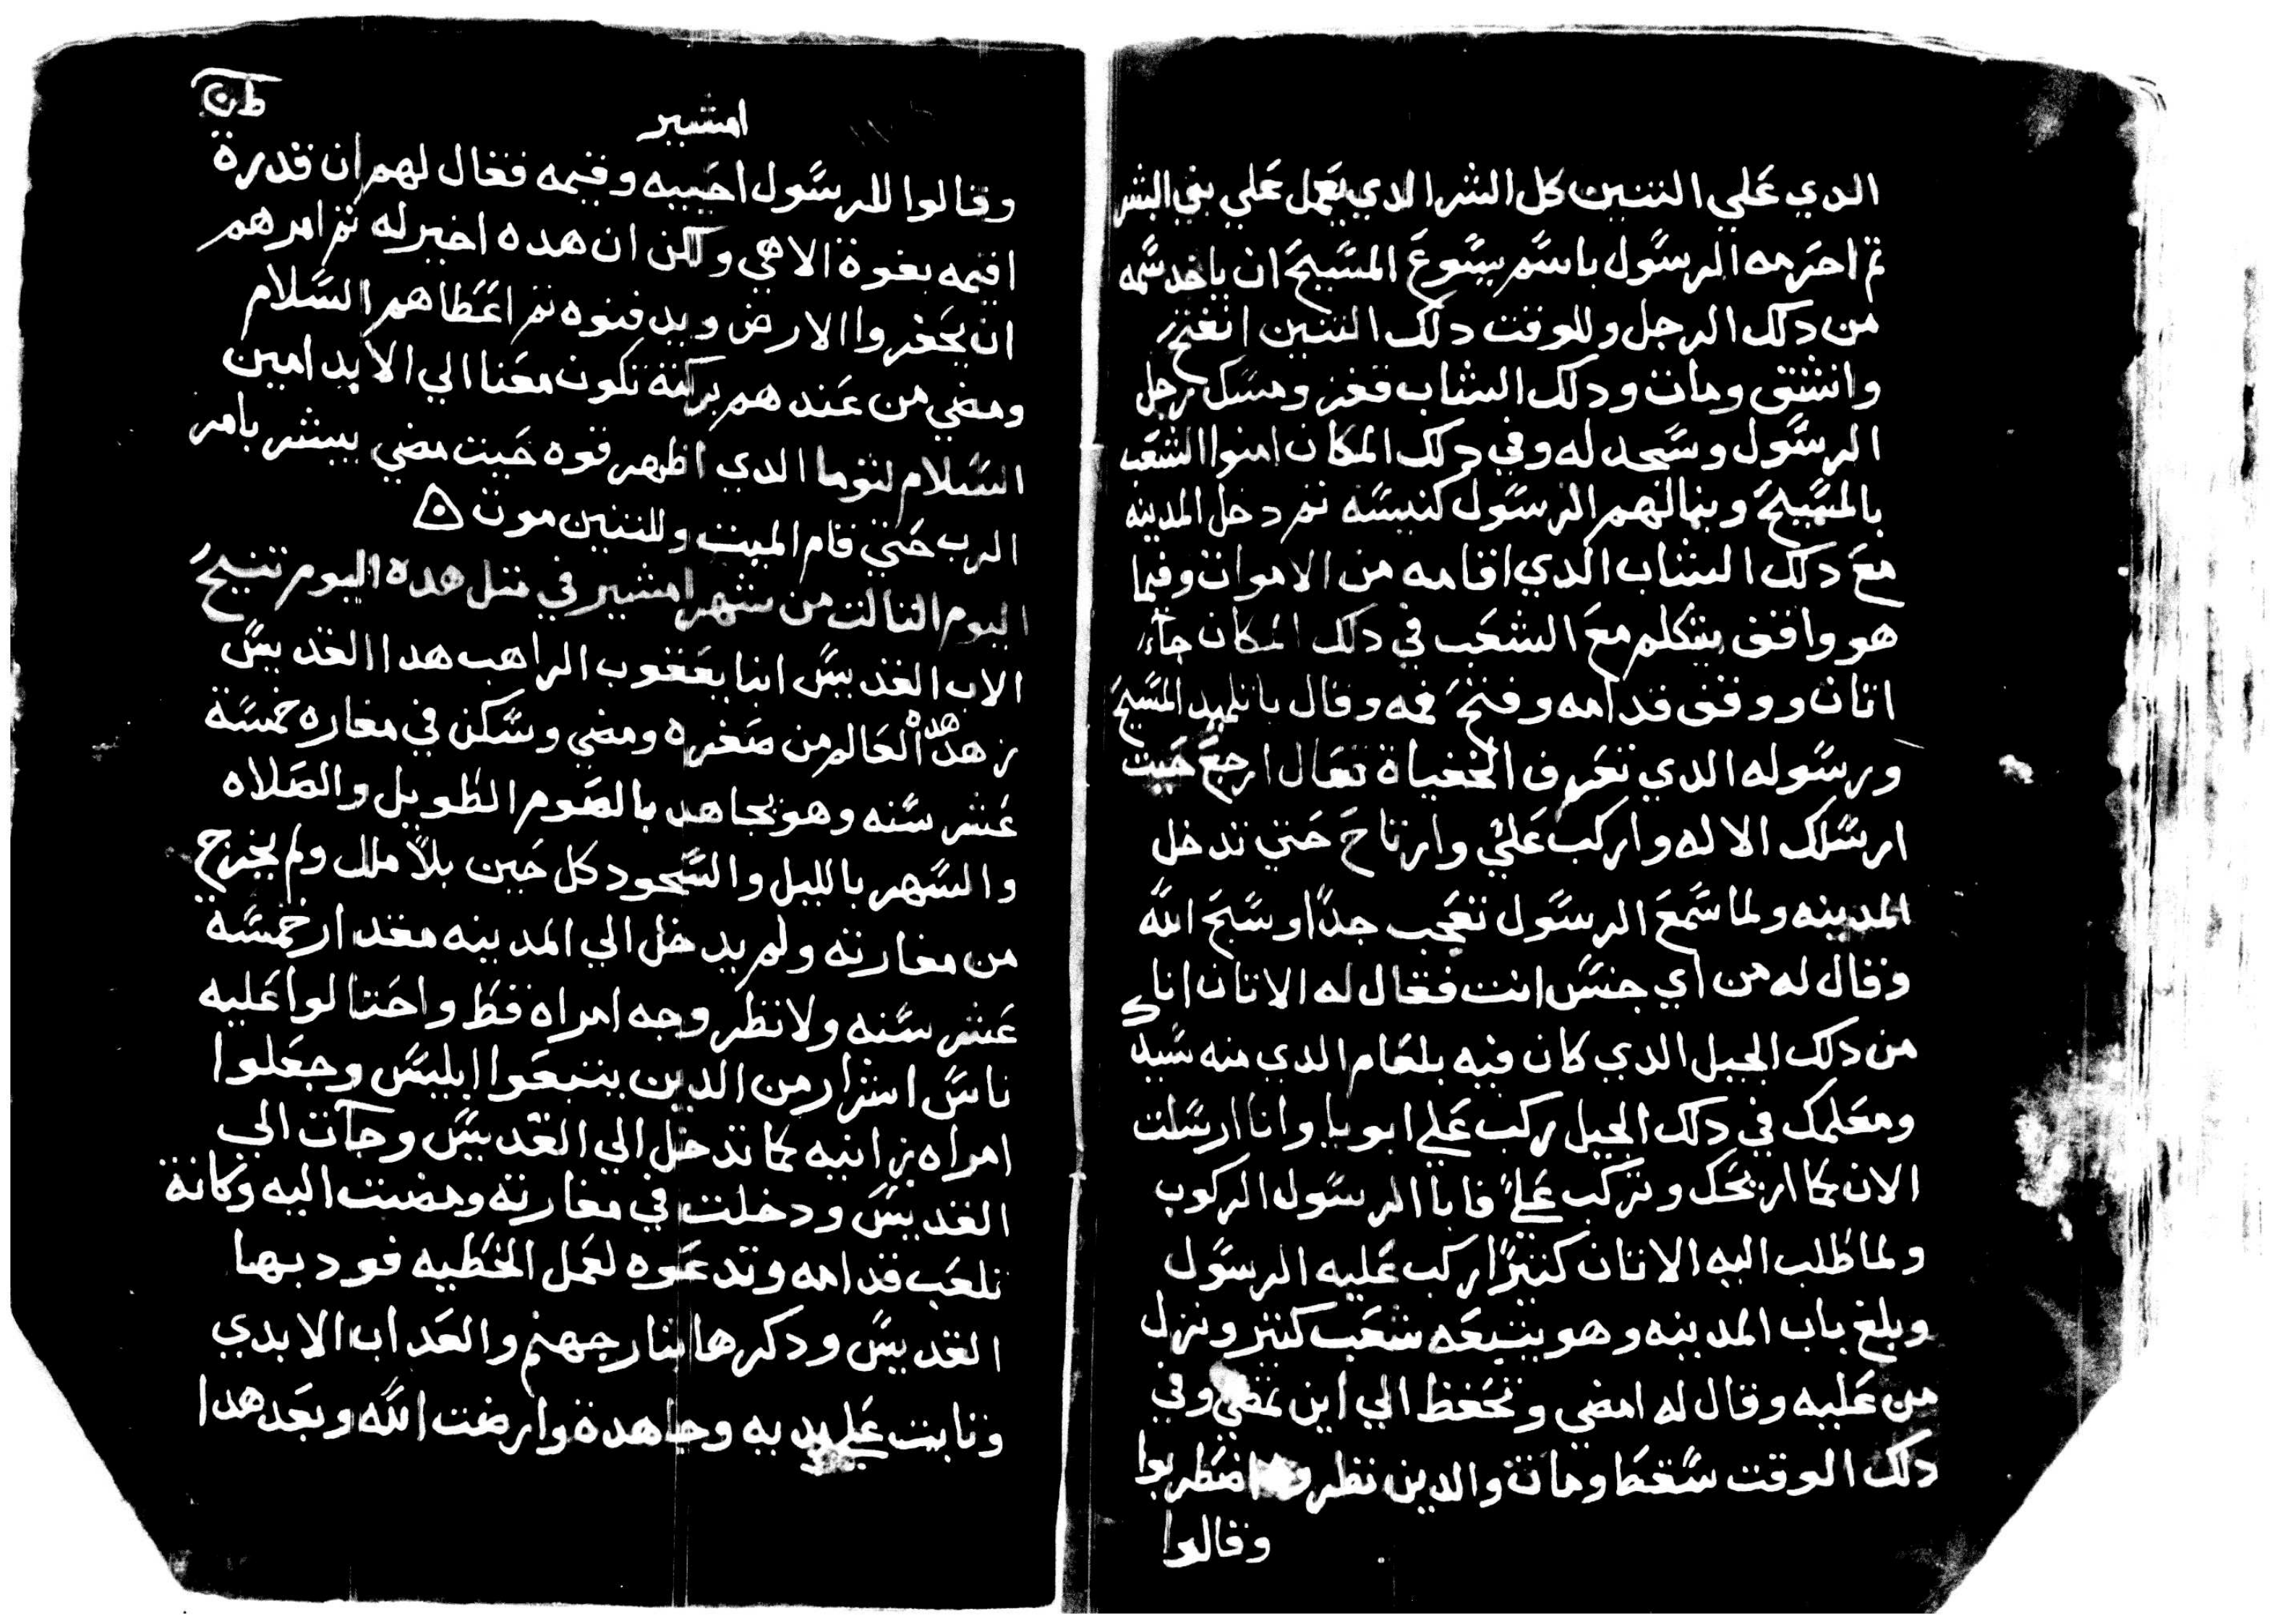 الدي علي التنين كل الشر الدي يعمل علي بني البشر
تم احرمه الرسول باسم يسوع المسيح ان ياخد سمه
من دلك الرجل وللوقت دلك التنين انتفخ
وانشق ومات ودلك الشاب قفز ومسك رجل
الرسول وسجد له وفي دلك المكان امنوا الشعب
بالمسيح وبنا لهم الرسول كنيسه تم دخل المدينه
مع دلك الشاب الدي اقامه من الاموات وفيما
هو واقف يتكلم مع الشعب في دلك المكان جاء
اتان ووقف قدامه وفتح فمه وقال يا تلميد المسيح
ورسوله الدي تعرف الخفياة تعال ارجع حيت
ارسلك الاله واركب علي وارتاح حتي تدخل
المدينه ولما سمع الرسول تعجب جدا وسبح الله
وقال له من اي جنس انت فقال له الاتان انا
من دلك الجبل الدي كان فيه بلعام الدي منه سيدك
ومعلمك في دلك الجبل ركب علي ابويا وانا ارسلت
الان كما اريحك وتركب علي فابا الرسول الركوب
ولما طلب اليه الاتان كتيرا ركب عليه الرسول
وبلغ باب المدينه وهو يتبعه شعب كتير ونزل
من عليه وقال له امضي وتحفظ الي اين تمضي وفي
دلك الوقت سقط ومات والدين نظروه اضطربوا
وقالوا
امشير
وقالوا للرسول احييه وقيمه فقال لهم ان قدرة
اقيمه بقوة الاهي ولكن ان هده اخير له تم امرهم
ان يحفروا الارض ويدفنوه تم اعطاهم السلام
ومضي من عندهم بركته تكون معنا الي الابد امين
السلام لتوما الدي اظهر قوه حيت مضي يبشر بامر
الرب حتي قام الميت وللتنين موت
اليوم التالت من شهر امشير في متل هده اليوم تنيح
الاب القديس انبا يعقوب الراهب هدا القديس
زهد هده العالم من صغره ومضي وسكن في مغاره خمسة
عشر سنه وهو يجاهد بالصوم الطويل والصلاه
والسهر بالليل والسجود كل حين بلا ملل ولم يخرج
من مغارته ولم يدخل الي المدينه مقدار خمسة
عشر سنه ولا نظر وجه امراه قط واحتالوا عليه
ناس اشرار من الدين يتبعوا ابليس وجعلوا
امراه زانيه كما تدخل الي القديس وجآت الي
القديس ودخلت في مغارته ومضت اليه وكانة
تلعب قدامه وتدعوه لعمل الخطيه فودبها
القديس ودكرها بنار جهنم والعداب الابدي
وتابت علي يديه وجاهدة وارضت الله وبعد هدا